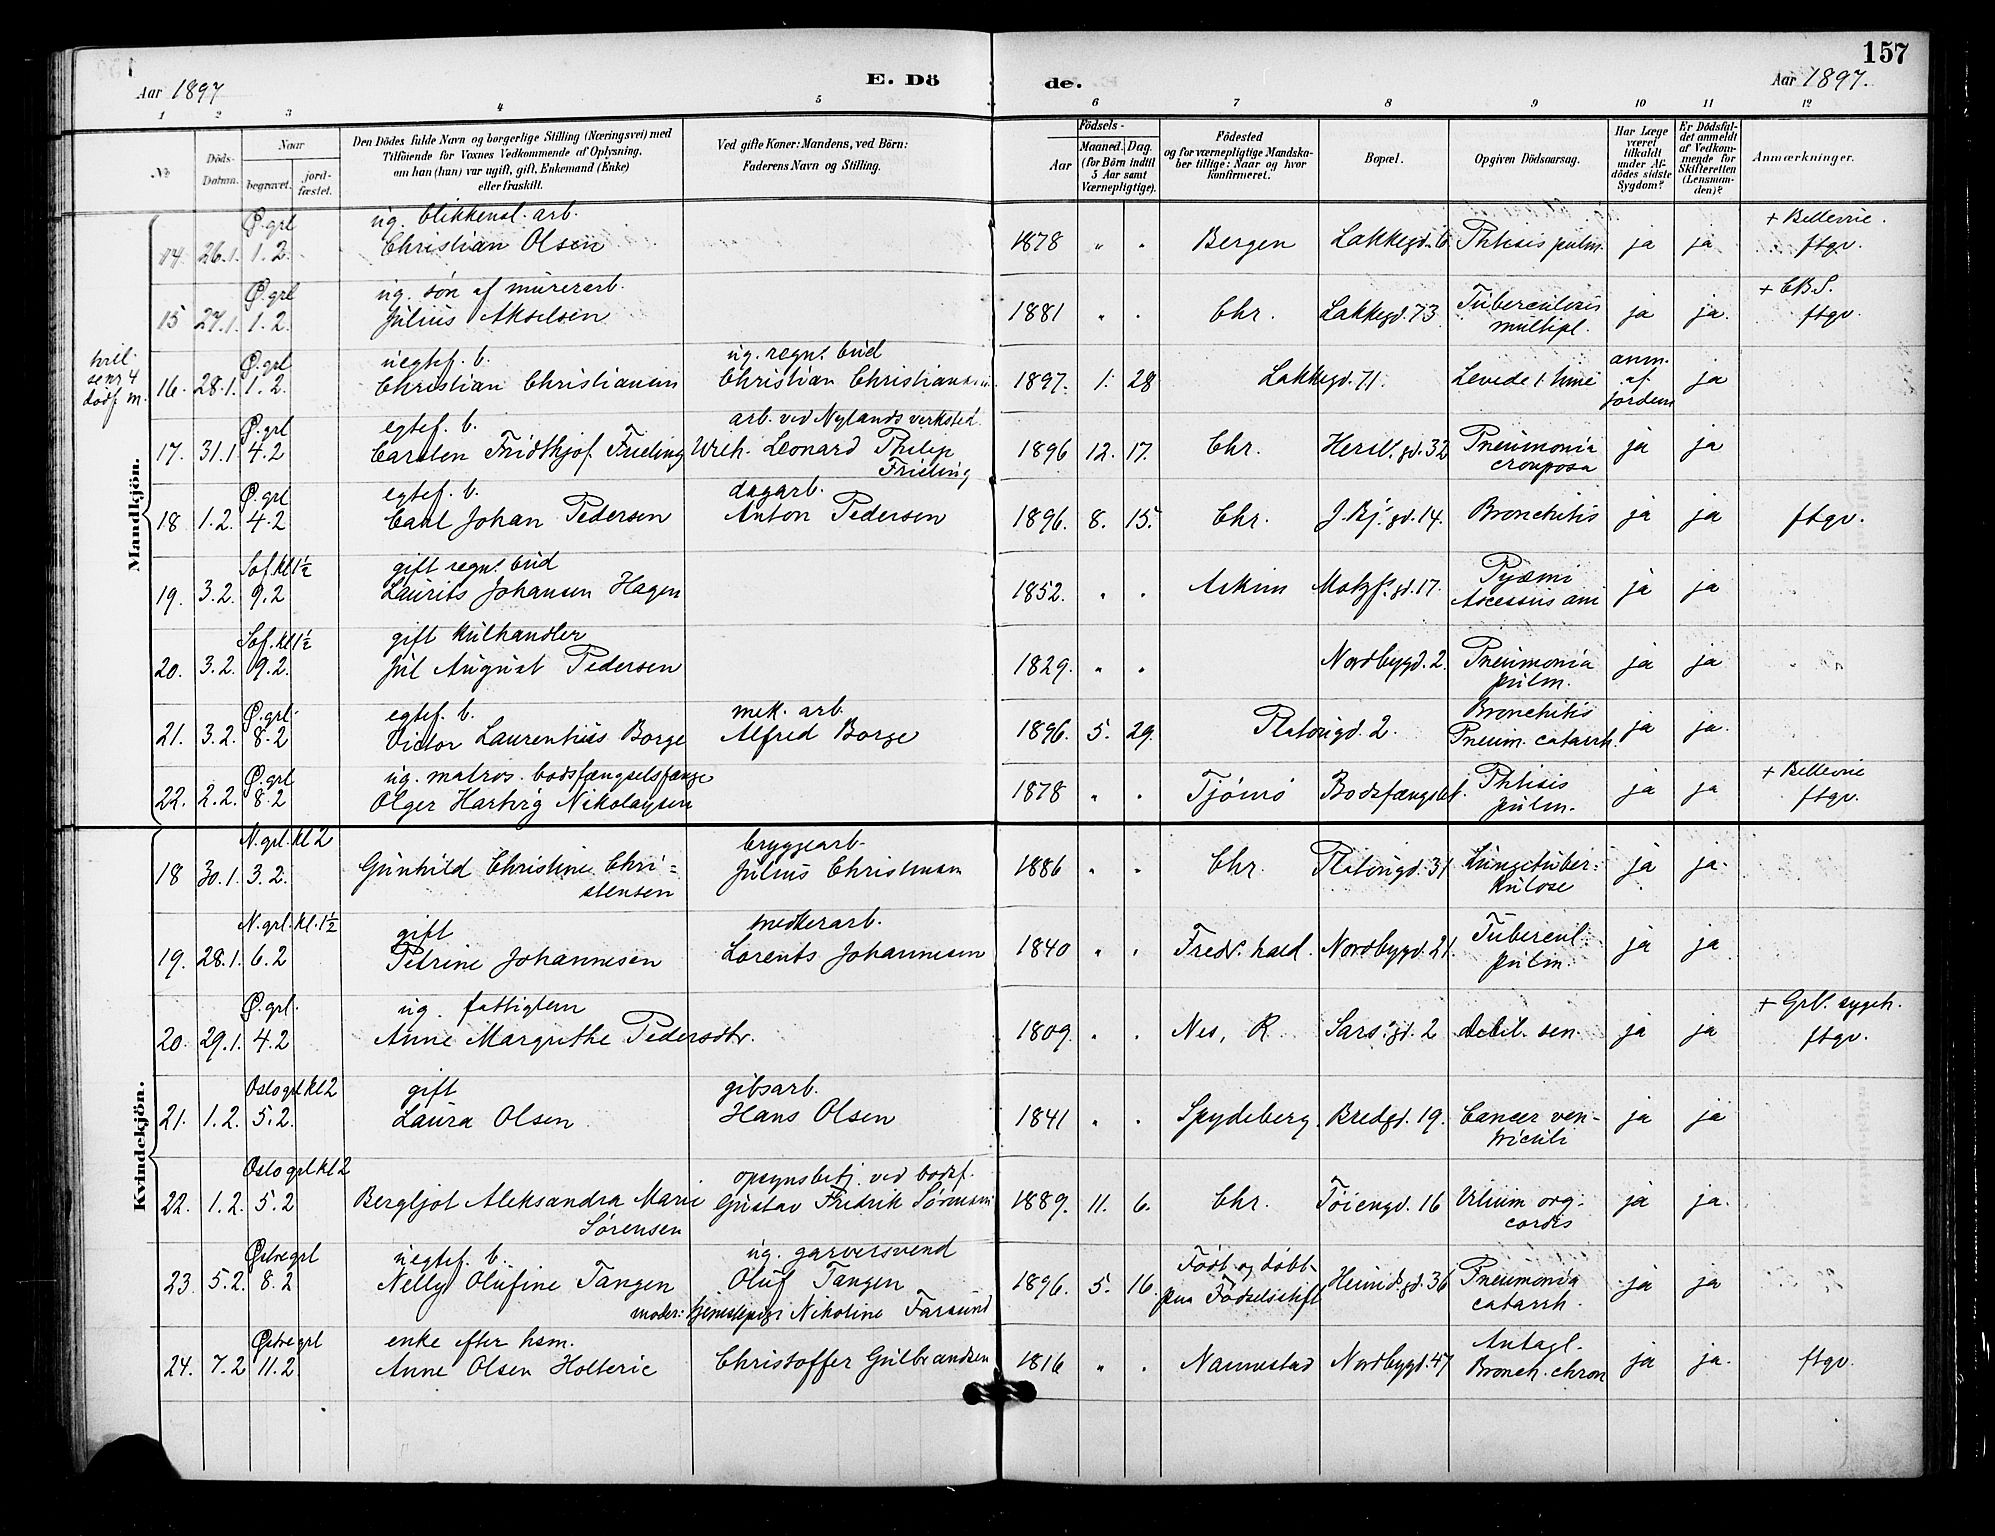 157
Aar 1897
E. Dö
de.
Aar 1897.
1 2 3 4 5 6 7 8 9 10 11 12
№ Döds-Datum. Naar begravet. jord-fæstet. Den Dödes fulde Navn og borgerlige Stilling (Næringsvei) med Tilföiende for Voxnes Vedkommende af Oplysning, om han (hun) var ugift, gift, Enkemand (Enke) eller fraskilt. Ved gifte Koner: Mandens, ved Börn: Faderens Navn og Stilling. Födsels- Aar Maaned. Dag. (for Börn indtil 5 Aar samt Værnepligtige). Födested og for værnepligtige Mandskaber tillige: Naar og hvor konfirmeret. Bopæl. Opgiven Dödsaarsag. Har Læge været tilkaldt under Afdödes sidste Sygdom? Er Dödsfaldet anmeldt af Vedkommende for Skifteretten (Lensmanden)? Anmærkninger.
Mandkjön.
Ø. grl ug. blikkensl. arb. + Bellevue.
14 26.1. 1.2. Christian Olsen 1878 " " Bergen Lakkegd. 6 Phtisis pulm. ja ja ftgv.
Ø. grl ug. søn af murerarb. + CBS.
15 27.1. 1.2. Julius Akselsen 1881 " " Chr. Lakkegd. 73 Tuberculosis multipl. ja ja. ftgv.
Ø. grl uegtef. b. ug. regns. bud
dødf m. 16. 28.1. 1.2. Christian Christiansen Christian Christiansen 1897. 1. 28 Lakkegd. 71. Levede 1 time anm. af jordem ja
Ø. grl egtef. b. arb. ved Nylands verksted.
17. 31.1 4.2 Carsten Fridthjof Frieling Wilh. Leonard Philip Frieling 1896 12. 17. Chr. Hersl. gd. 32 Pneumonia crouposa ja ja
Ø. grl egtef. b. dagarb.
18 1.2. 4.2 Carl Johan Pedersen Anton Pedersen 1896. 8. 15. Chr. J. Bj. gd. 14. Bronchitis ja ja ftgv.
Sof. kl 1½ gift regns. bud
19. 3.2. 9.2 Laurits Johansen Hagen 1852. " " Askim Motzf. gd. 17. Pyæmi Ascessus ani ja ja
Sof. kl 1½ gift kulhandler
20. 3.2. 9.2. Jul August Pedersen 1829. " " Nordbygd. 2. Pneumonia pulm. ja ja
Ø. grl. egtef. b. mek. arb.
21. 3.2. 8.2 Victor Laurentius Borge Alfred Borge 1896. 5. 29. Platousgd. 2. Bronchitis Pneum. catarrh. ja ja.
Ø. grl ug. matros. bodsfængselsfange + Bellevue
22. 2.2. 8.2 Olger Hartvig Nikolaysen 1878 " " Tjømø Bodsfængslet. Phtisis pulm. ja ja ftgv.
Kvindekjön.
N. grl. kl 2 bryggearb.
18 30.1. 3.2. Gunhild Christine Chri=stensen Julius Christensen 1886 " " Chr. Platousgd. 31 Lungetuber=kulose ja ja.
N. grl. kl. 1½ gift snedkerarb.
19. 28.1. 6.2 Petrine Johannesen Lorents Johannesen 1840 " " Fredr. hald. Nordbygd. 21. Tubercul. pulm. ja ja
Ø. grl. ug. fattiglem + Grl. sygeh.
20. 29.1. 4.2 Anne Margrethe Pedersdtr. 1809. " " Nes, R. Sars' gd. 2 debil. sen. ja ja ftgv.
Oslo grl kl 2 gift gibsarb.
21. 1.2. 5.2. Laura Olsen Hans Olsen 1841 " " Spydeberg. Bredgd. 19. Cancer ven-triculi ja ja
Oslo grl kl 2 opsynsbetj. ved bodsf.
22. 1.2. 5.2 Bergljot Aleksandra Marie Sørensen Gustav Fredrik Sørensen 1889. 11. 6. Chr. Tøiengd. 16 Vitium org. cordis ja ja.
Østre grl uegtef. b. ug. garversvend
23. 5.2. 8.2 Nelly Olufine Tangen Oluf Tangen 1896. 5. 16. Født og døbt paa Fødselsstift Heimdsgd. 36 Pneumonia catarrh. ja ja
moder: tjenestepige Nikoline Farsund
Østre grl enke efter hsm.
24. 7.2 11.2 Anne Olsen Holterie Christoffer Gulbrandsen 1816 " " Nannestad Nordbygd. 47 Antagl. Bronch. chron ja ja. ftgv.